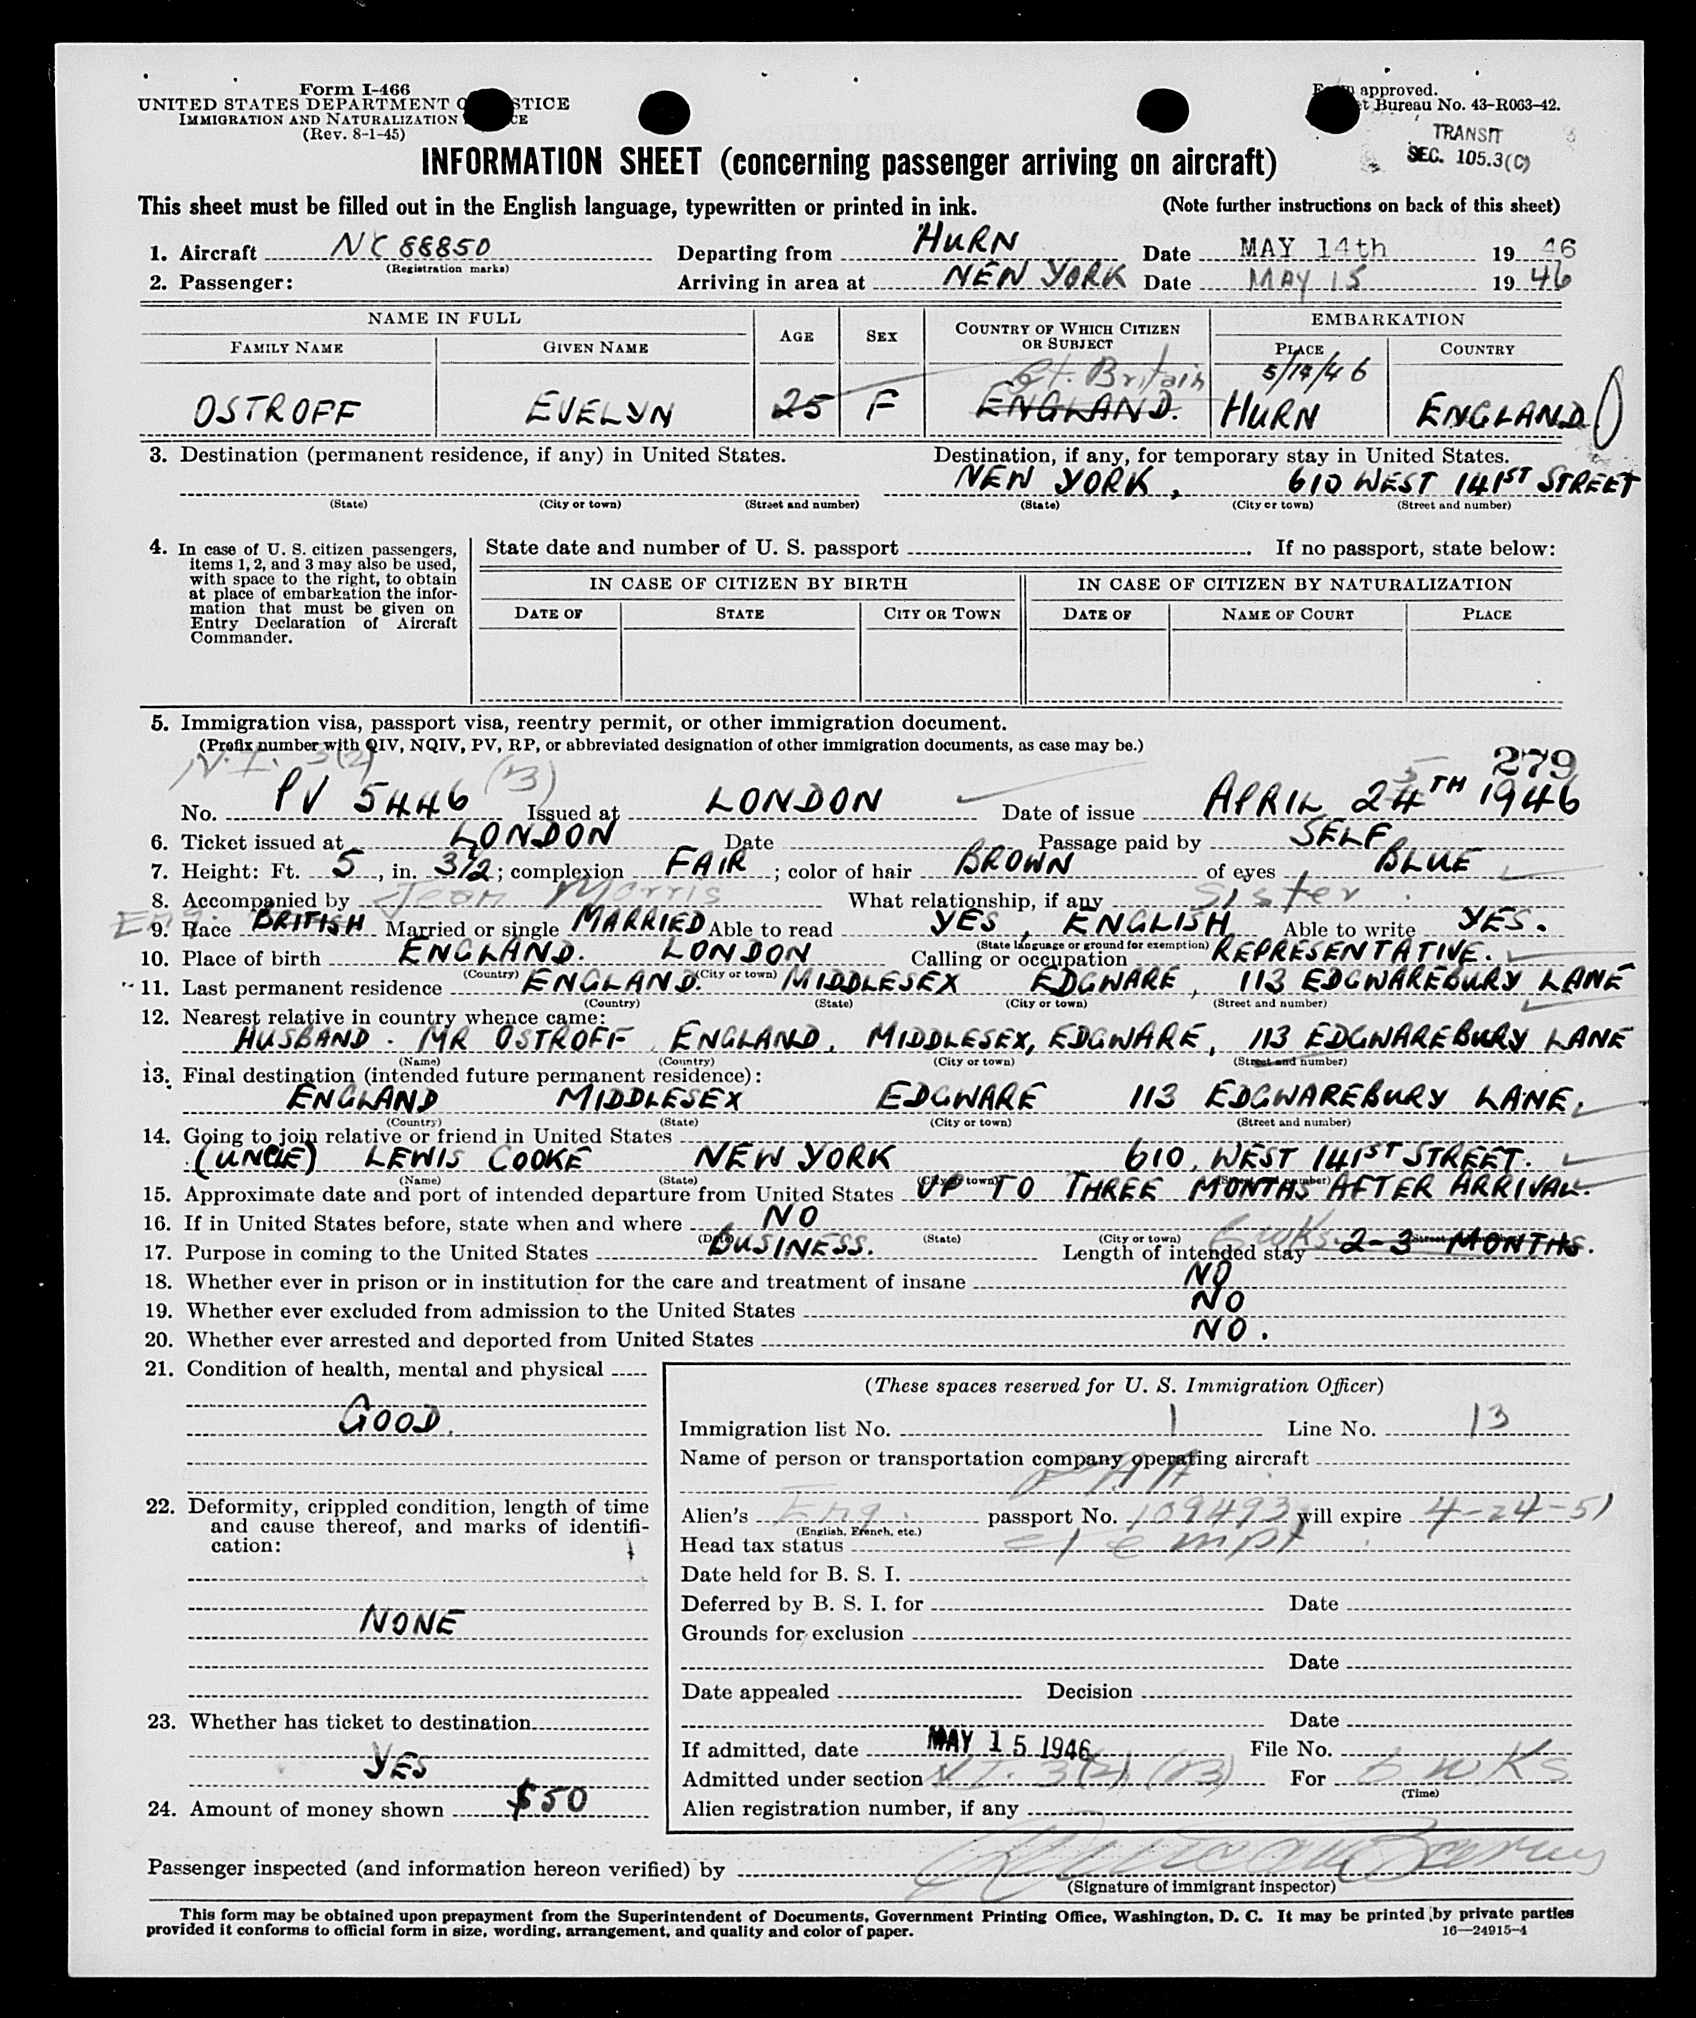 Form I-466
UNITED STATES DEPARTMENT OF JUSTICE
IMMIGRATION AND NATURALIZATION
(Rev. 8-1-45)
approved.
Bureau No. 43-R063-42.
TRANSIT
SEC. 105.3(C)
INFORMATION SHEET (concerning passenger arriving on aircraft)
This sheet must be filled out in the English language, typewritten or printed in ink. (Note further instructions on back of this sheet)
1. Aircraft NC 88850 Departing from HURN Date MAY 14th 19 46
(Registration marks)
2. Passenger: Arriving in area at NEW YORK Date MAY 15 19 46
NAME IN FULL AGE SEX COUNTRY OF WHICH CITIZEN OR SUBJECT EMBARKATION
FAMILY NAME GIVEN NAME PLACE COUNTRY
Gt. Britain 5/14/46
OSTROFF EVELYN 25 F ENGLAND. HURN ENGLAND
3. Destination (permanent residence, if any) in United States. Destination, if any, for temporary stay in United States.
NEW YORK, 610 WEST 141ST STREET
(State) (City or town) (Street and number) (State) (City or town) (Street and number)
4. In case of U. S. citizen passengers, items 1, 2, and 3 may also be used, with space to the right, to obtain at place of embarkation the information that must be given on Entry Declaration of Aircraft Commander.
State date and number of U. S. passport . If no passport, state below:
IN CASE OF CITIZEN BY BIRTH IN CASE OF CITIZEN BY NATURALIZATION
DATE OF STATE CITY OR TOWN DATE OF NAME OF COURT PLACE
5. Immigration visa, passport visa, reentry permit, or other immigration document.
(Prefix number with QIV, NQIV, PV, RP, or abbreviated designation of other immigration documents, as case may be.)
N.I. 3(2) (B) 279
No. PV 5446 Issued at LONDON Date of issue APRIL 24TH 1946
6. Ticket issued at LONDON Date Passage paid by SELF
7. Height: Ft. 5, in. 3½; complexion FAIR; color of hair BROWN of eyes BLUE
8. Accompanied by Jean Morris What relationship, if any Sister
Eng.
9. Race BRITISH Married or single MARRIED Able to read YES, ENGLISH Able to write YES.
(State language or ground for exemption)
10. Place of birth ENGLAND. LONDON Calling or occupation REPRESENTATIVE.
(Country) (City or town)
11. Last permanent residence ENGLAND. MIDDLESEX EDGWARE, 113 EDGWAREBURY LANE
(Country) (State) (City or town) (Street and number)
12. Nearest relative in country whence came:
HUSBAND. MR OSTROFF, ENGLAND, MIDDLESEX, EDGWARE, 113 EDGWAREBURY LANE
(Name) (Country) (City or town) (Street and number)
13. Final destination (intended future permanent residence):
ENGLAND MIDDLESEX EDGWARE 113 EDGWAREBURY LANE.
(Country) (State) (City or town) (Street and number)
14. Going to join relative or friend in United States
(UNCLE) LEWIS COOKE NEW YORK 610, WEST 141ST STREET.
(Name) (State) (City or town) (Street and number)
15. Approximate date and port of intended departure from United States UP TO THREE MONTHS AFTER ARRIVAL.
16. If in United States before, state when and where NO
(Date) (State) (City or town) (Street and number)
17. Purpose in coming to the United States BUSINESS. Length of intended stay 6 wks. 2-3 MONTHS.
18. Whether ever in prison or in institution for the care and treatment of insane NO
19. Whether ever excluded from admission to the United States NO
20. Whether ever arrested and deported from United States NO.
21. Condition of health, mental and physical
GOOD.
22. Deformity, crippled condition, length of time and cause thereof, and marks of identification:
NONE
23. Whether has ticket to destination
YES
24. Amount of money shown $50
(These spaces reserved for U. S. Immigration Officer)
Immigration list No. 1 Line No. 13
Name of person or transportation company operating aircraft
PAA
Alien's Eng. passport No. 109493 will expire 4-24-51
(English, French, etc.)
Head tax status exempt
Date held for B. S. I.
Deferred by B. S. I. for Date
Grounds for exclusion
Date
Date appealed Decision
Date
If admitted, date MAY 15 1946 File No.
Admitted under section N.I. 3(2) (B) For 6 wks
(Time)
Alien registration number, if any
Passenger inspected (and information hereon verified) by
(Signature of immigrant inspector)
This form may be obtained upon prepayment from the Superintendent of Documents, Government Printing Office, Washington, D. C. It may be printed by private parties
provided it conforms to official form in size, wording, arrangement, and quality and color of paper. 16—24915-4